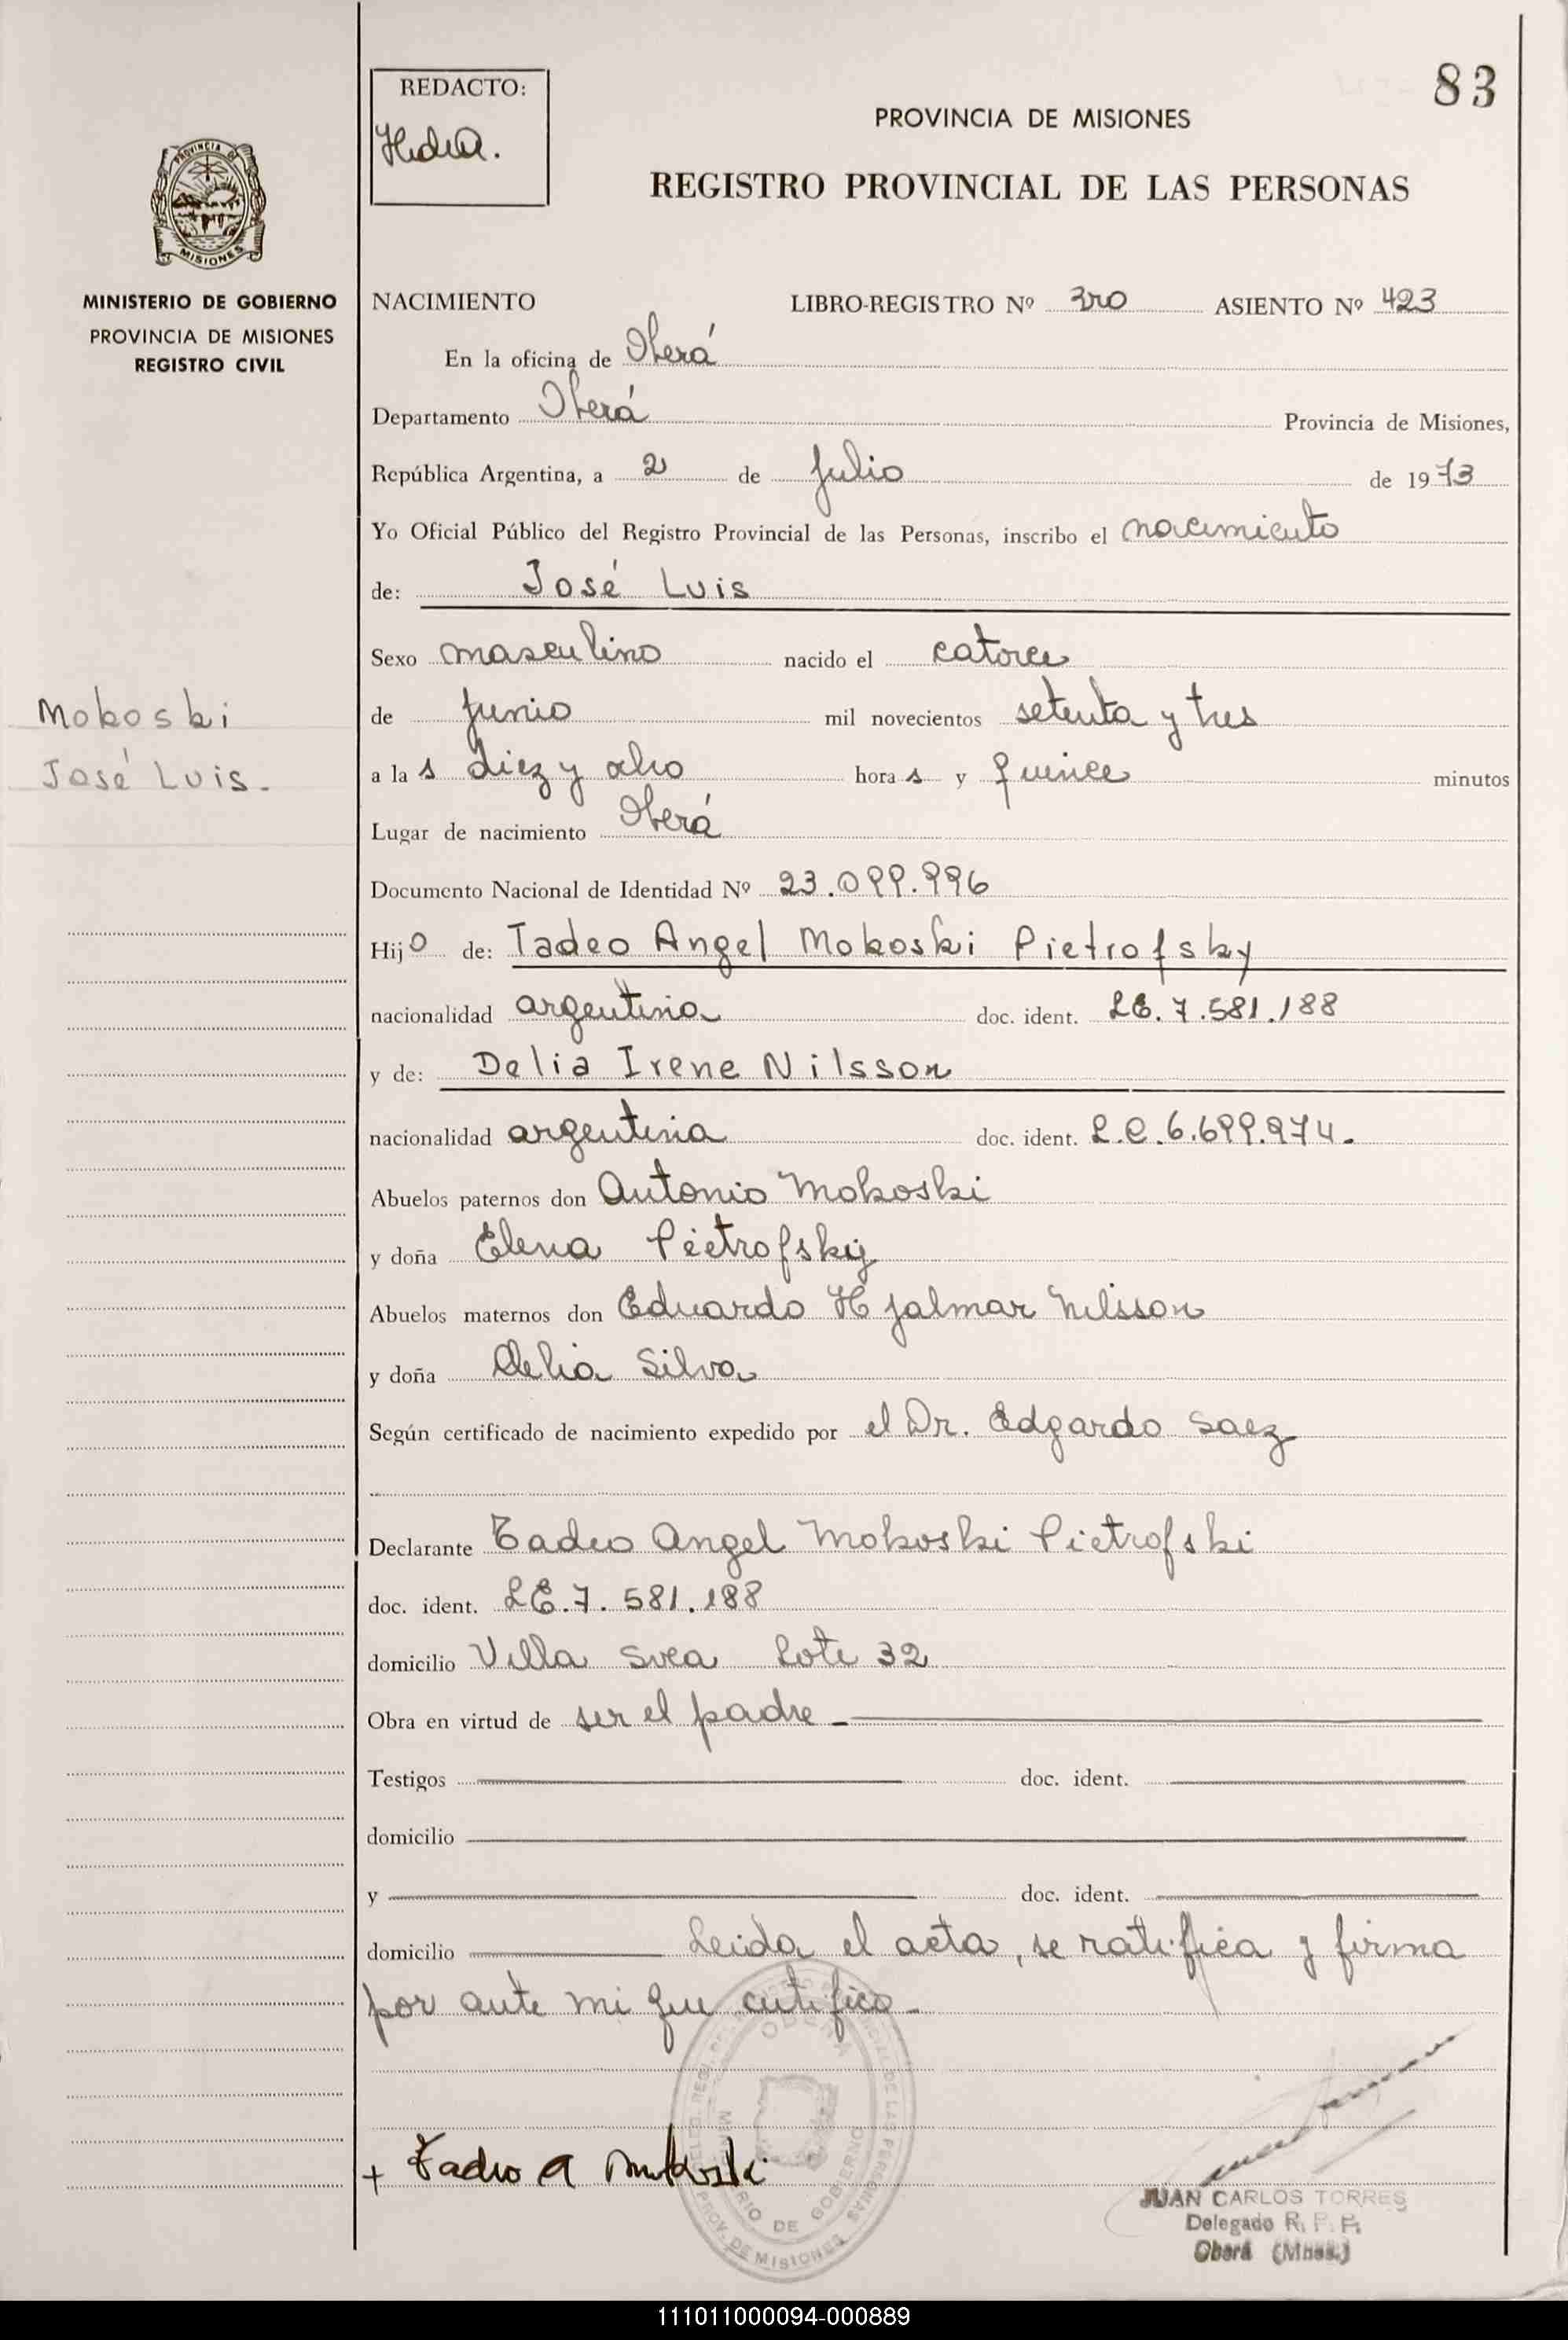 83
REDACTO:
PROVINCIA DE MISIONES
REGISTRO PROVINCIAL DE LAS PERSONAS
PROVINCIA DE
MISIONES
MINISTERIO DE GOBIERNO
PROVINCIA DE MISIONES
REGISTRO CIVIL
NACIMIENTO LIBRO-REGISTRO Nº 3ro ASIENTO Nº 423
En la oficina de Oberá
Departamento Oberá Provincia de Misiones,
República Argentina, a 2 de Julio de 1973
Yo Oficial Público del Registro Provincial de las Personas, inscribo el nacimiento
de: José Luis
Sexo masculino nacido el catorce
Mokoski
José Luis.
de Junio mil novecientos setenta y tres
a las diez y ocho horas y quince minutos
Lugar de nacimiento Oberá
Documento Nacional de Identidad Nº 23.099.996
Hijo de: Tadeo Angel Mokoski Pietrofsky
nacionalidad argentina doc. ident. LE. 7.581.188
y de: Delia Irene Nilsson
nacionalidad argentina doc. ident. L.C.6.699.974.
Abuelos paternos don Antonio Mokoski
y doña Elena Pietrofsky
Abuelos maternos don Eduardo Hjalmar Nilsson
y doña Delia Silva
Según certificado de nacimiento expedido por el Dr. Edgardo Saez
Declarante Tadeo Angel Mokoski Pietrofski
doc. ident. LE.7.581.188
domicilio Villa Svea Lote 32
Obra en virtud de ser el padre
Testigos doc. ident.
domicilio
y doc. ident.
domicilio Leida el acta, se ratifica y firma
por ante mi que certifico
OBERA
MINISTERIO DE GOBIERNO
PROV. DE MISIONES
+ Tadeo A Mokoski
JUAN CARLOS TORRES
Delegado R. P. P.
Oberá (Mnes.)
111011000094-000889